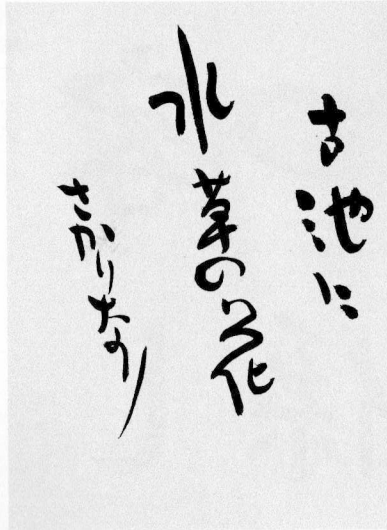 古池に
水草の花
さかりなり